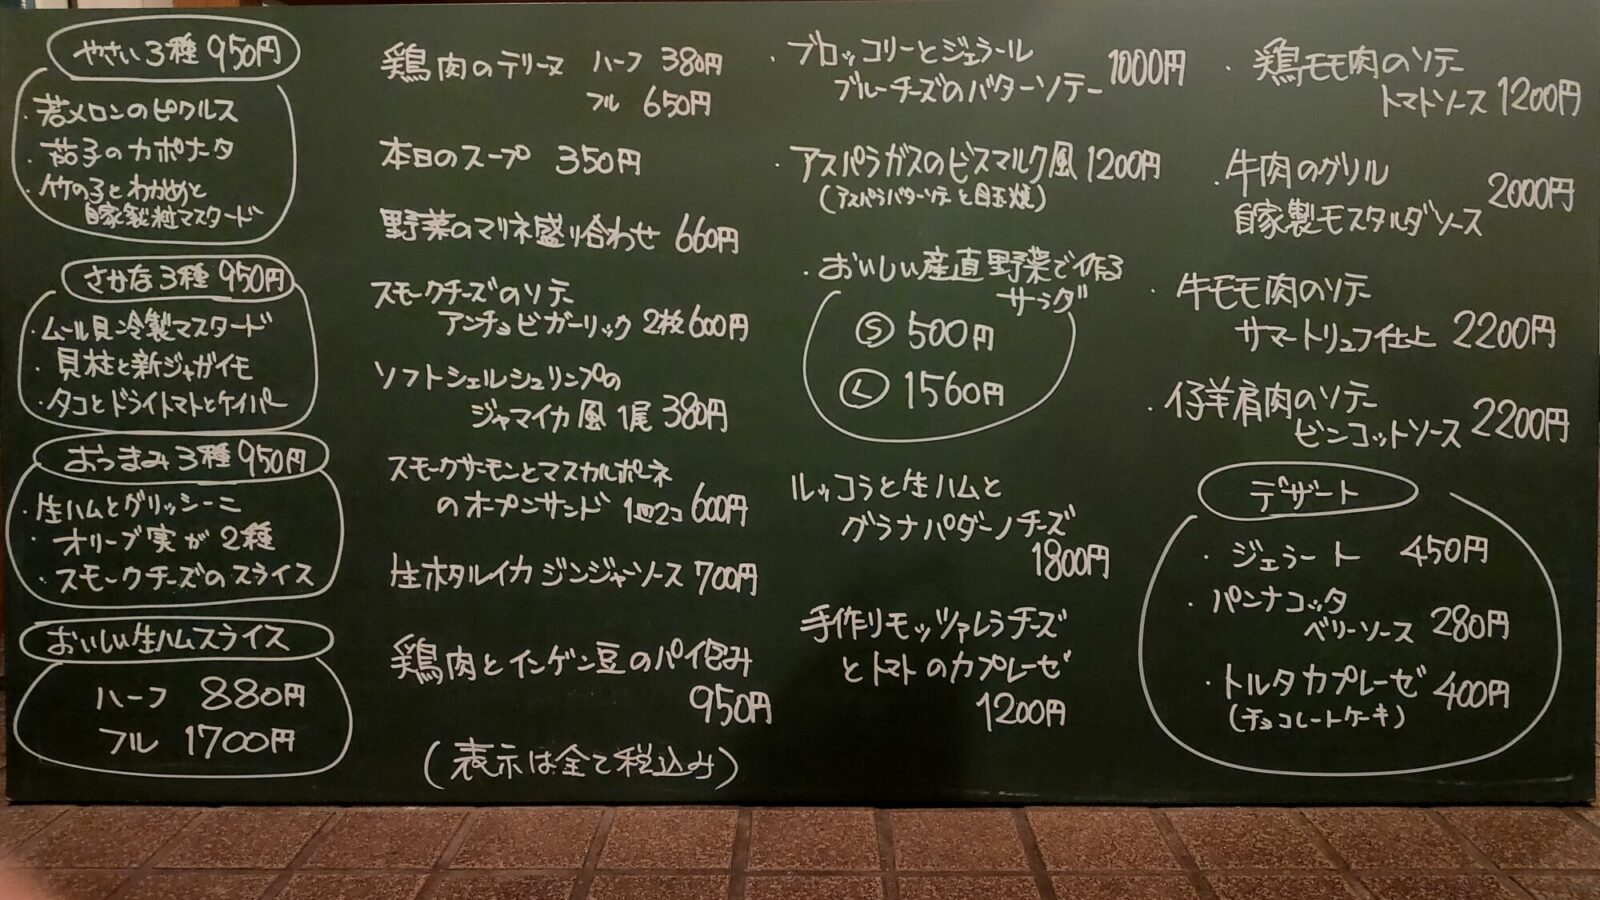 やさい3種 950円
・若メロンのピクルス
・茄子のカポナータ
・竹の子とわかめと
自家製粒マスタード
さかな3種 950円
・ムール貝冷製マスタード
・貝柱と新ジャガイモ
・タコとドライトマトとケイパー
おつまみ3種 950円
・生ハムとグリッシーニ
・オリーブ実が2種
・スモークチーズのスライス
おいしい生ハムスライス
ハーフ 880円
フル 1700円
鶏肉のテリーヌ ハーフ 380円
フル 650円
本日のスープ 350円
野菜のマリネ盛り合わせ 660円
スモークチーズのソテー
アンチョビガーリック 2枚 600円
ソフトシェルシュリンプの
ジャマイカ風 1尾 380円
スモークサーモンとマスカルポーネ
のオープンサンド 1皿2コ 600円
生ホタルイカ ジンジャーソース 700円
鶏肉とインゲン豆のパイ包み
950円
(表示は全て税込み)
・ブロッコリーとジェラール
ブルーチーズのバターソテー 1000円
・アスパラガスのビスマルク風 1200円
(アスパラバターソテーと目玉焼)
・おいしい産直野菜で作る
サラダ
Ⓢ 500円
Ⓛ 1560円
ルッコラと生ハムと
グラナパダーノチーズ
1800円
手作りモッツァレラチーズ
とトマトのカプレーゼ
1200円
・鶏モモ肉のソテー
トマトソース 1200円
・牛肉のグリル
自家製モスタルダソース 2000円
・牛モモ肉のソテー
サマートリュフ仕上 2200円
・仔羊肩肉のソテー
ビンコットソース 2200円
デザート
・ジェラート 450円
・パンナコッタ
ベリーソース 280円
・トルタカプレーゼ 400円
(チョコレートケーキ)